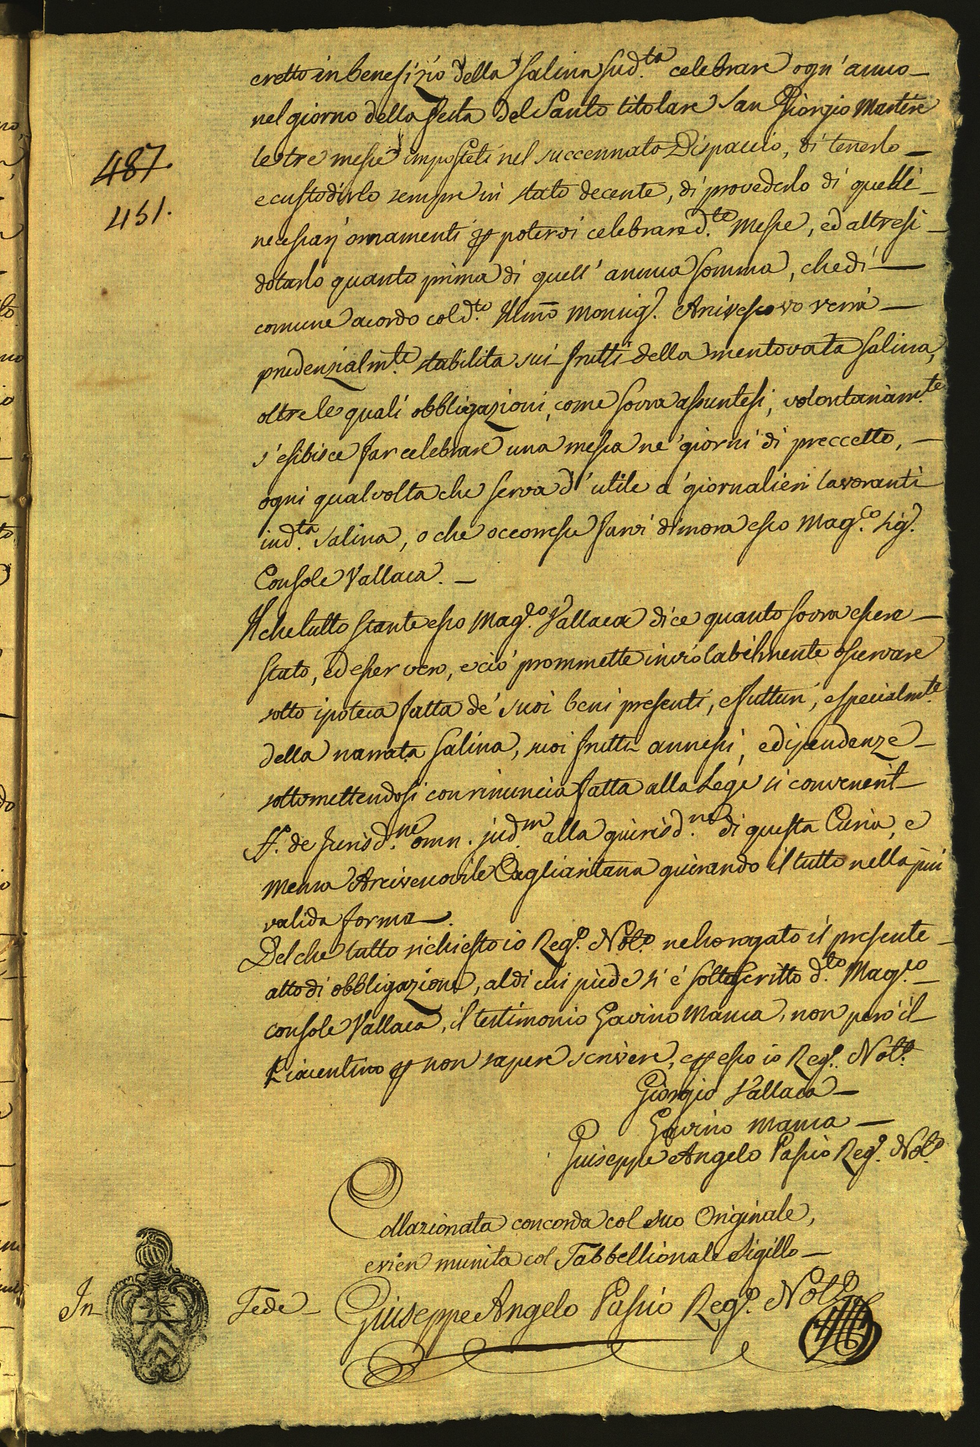 eretto in benefizio della Salina sud.ta celebrare ogn' anno
nel giorno della festa del Santo titolare San Giorgio Martire
487.
le tre messe imposteli nel succennato Dispaccio, di tenerlo
e custodirlo sempre in stato decente, di provederlo di quelli
451.
necessarj ornamenti p potervi celebrare d.te Messe, ed altresi
dotarlo quanto prima di quell' annua somma, che di
comune acordo col d.to Illmo Monsig.r Arcivescovo verrà
prudenzialm.te stabilita sui frutti della mentovata Salina,
oltre le quali obbligazioni, come sovra assuntesi, volontariam.te
s'esibisce far celebrare una messa ne' giorni di preccetto,
ogni qualvolta che serva d' utile a' giornalieri lavoranti
in d.ta Salina, o che occorresse farvi dimora esso Mag.co Sig.r
Console Vallaca.
Il che tutto stante esso Mag.co Vallaca dice quanto sovra essere
stato, ed esser vero, e ciò prommette inviolabilmente osservare
sotto ipoteca fatta de' suoi beni presenti, e futturi, e specialm.te
della narrata Salina, suoi frutti annessi, e dipendenze
sottomettendosi con rinuncia fatta alla Lege si convenerit
ff. de Jurisd.ne omn. jud.m alla giurisd.ne di questa Curia, e
mensa Arcivescovile Cagliaritana giurando il tutto nella più
valida forma.
Del che tutto richiesto io Reg.o Not.o ne ho rogato il presente
atto di obbligazione, al di cui piede si è sottoscritto d.to Mag.co
console Vallaca, il testimonio Gavino Manca, non però il
Piacentino p non sapere scrivere, e p esso io Reg.o Not.o
Giorgio Vallaca
Gavino Manca
Giuseppe Angelo Passio Reg.o Not.o
Collazionata concorda col suo Originale,
e vien munita col Tabbellionale Sigillo
In Fede Giuseppe Angelo Passio Reg.o Not.o